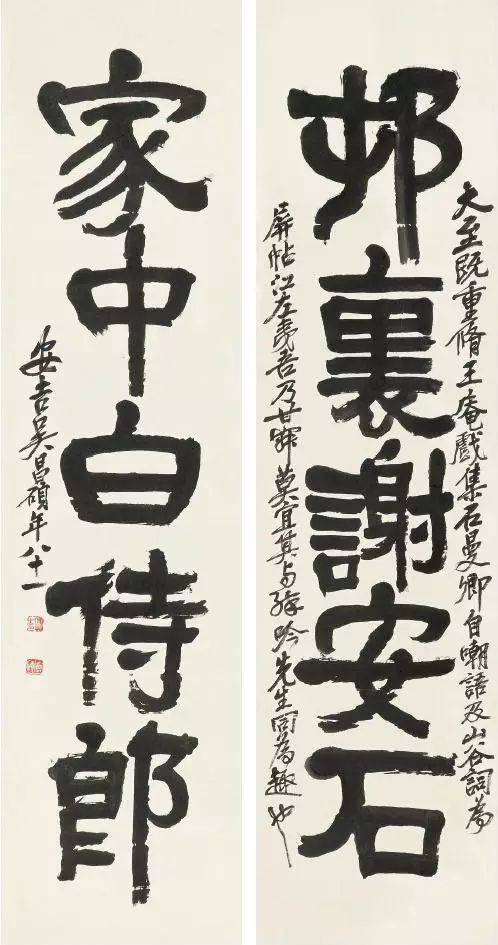 邨裏謝安石
大至既重脩王庵戲集石曼卿自嘲語及山谷詞為
屏帖江左夷吾乃甘莫宜其与吟先生同為趣也
家中白侍郎
安吉吴昌碩年八十一